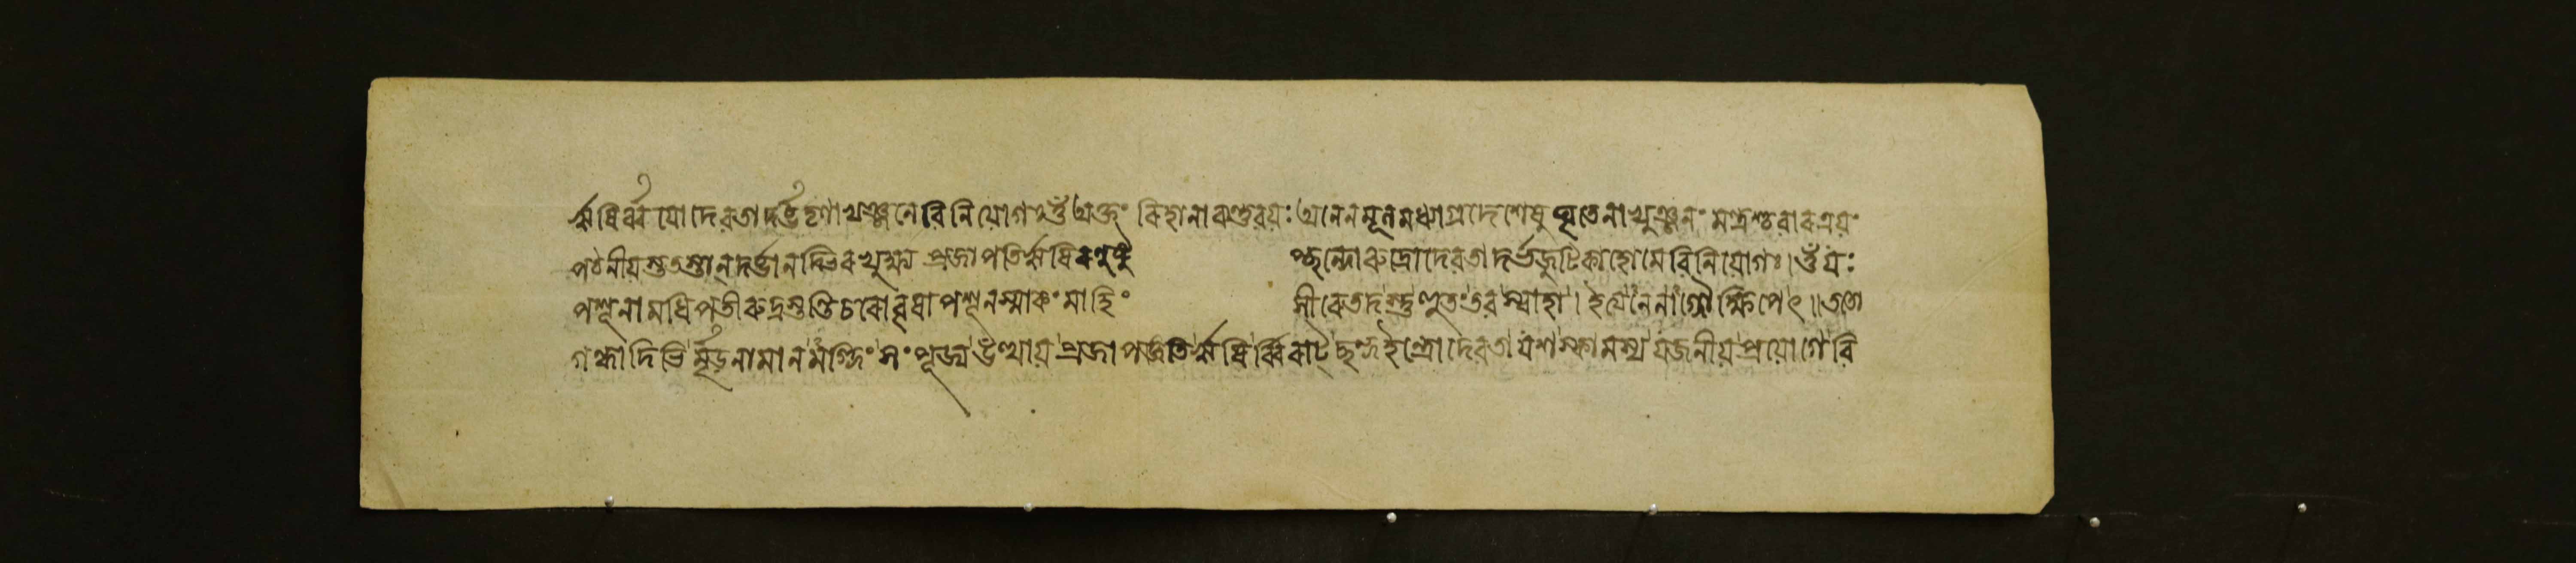 র্ঋষির্ব্বয়ো দেবতা দর্ভতৃণাভ্যঞ্জনে বিনিয়োগঃ ওঁ অক্তং রিহানা ব্যন্তু বয়ঃ অনেন মূলমধ্যাগ্রদেশেষু ঘৃতেনাভ্যঞ্জনং মন্ত্রশ্চ বারত্রয়ং
পঠনীয়স্তত স্তান্ দর্ভানদ্ভিরভ্যুক্ষ্য প্রজাপতিরৃষিরনুষ্টু প্ছন্দো রুদ্রো দেবতা দর্ভজুটিকাহোমে বিনিয়োগঃ। ওঁ যঃ
পশূনামধিপতী রুদ্রস্তন্তিচরো বৃষা পশূনস্মাকং মা হিং সীরেতদস্তু হুতং তব স্বাহা। ইত্যনেনাগ্নৌ ক্ষিপেৎ॥ ততো
গন্ধাদিভির্মৃড়নামানমগ্নিং সংপূজ্য উত্থায় প্রজাপতিরৃষির্ব্বিরাট্ ছন্দ ইন্দ্রো দেবতা যশস্কামস্য যজনীয়প্রয়োগে বি